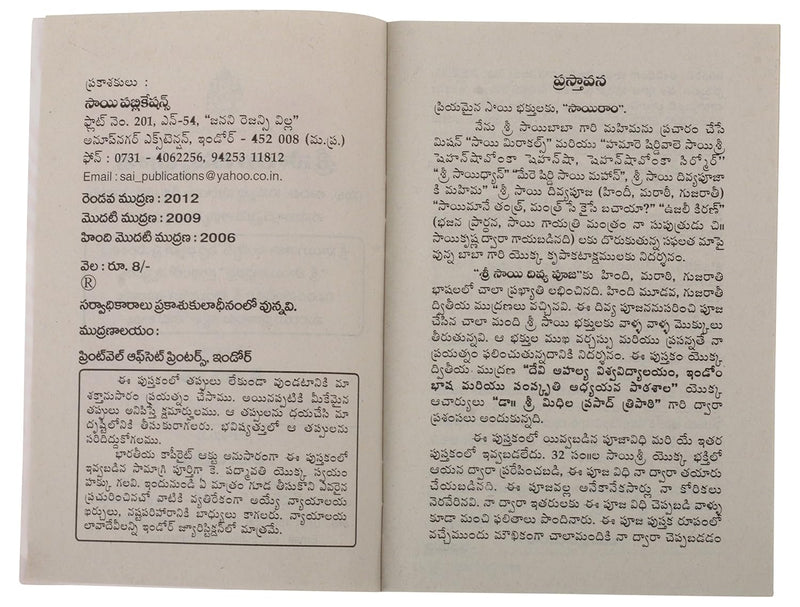 ప్రకాశకులు :
సాయి పబ్లికేషన్స్
ఫ్లాట్ నెం. 201, ఎన్-54, “జనని రెజన్సి విల్ల”
అనూప్‌నగర్ ఎక్స్‌టెన్షన్, ఇండోర్ - 452 008 (మ.ప్ర.)
ఫోన్ : 0731 - 4062256, 94253 11812
Email : sai_publications@yahoo.co.in.
రెండవ ముద్రణ : 2012
మొదటి ముద్రణ : 2009
హింది మొదటి ముద్రణ : 2006
వెల : రూ. 8/-
®
సర్వాధికారాలు ప్రకాశకులాధీనంలో వున్నవి.
ముద్రణాలయం :
ప్రింట్‌వెల్ ఆఫ్‌సెట్ ప్రింటర్స్, ఇండోర్
ఈ పుస్తకంలో తప్పులు లేకుండా వుండటానికి మా
శక్తానుసారం ప్రయత్నం చేసాము. అయినప్పటికి మీకేమైన
తప్పులు అనిపిస్తే క్షమార్హులము. ఆ తప్పులను దయచేసి మా
దృష్టిలోనికి తీసుకురాగలరు. భవిష్యత్తులో ఆ తప్పులను
సరిదిద్దుకోగలము.
భారతీయ కాపీరైట్ ఆక్టు అనుసారంగా ఈ పుస్తకంలో
ఇవ్వబడిన సామాగ్రి పూర్తిగా కె. పద్మావతి యొక్క స్వయం
హక్కు గలవి. ఇందునుండి ఏ మాత్రం గూడ తీసుకొని ఎవరైన
ప్రచురించినచో వాటికి వ్యతిరేకంగా అయ్యే న్యాయాలయ
ఖర్చులు, నష్టపరిహారానికి బాధ్యులు కాగలరు. న్యాయాలయ
లావాదేవీలన్ని ఇండోర్ జ్యూరిస్టిక్షన్‌లో మాత్రమే.
ప్రస్తావన
ప్రియమైన సాయి భక్తులకు, “సాయిరాం”.
నేను శ్రీ సాయిబాబా గారి మహిమను ప్రచారం చేసే
మిషన్ “సాయి మిరాకల్స్” మరియు “హమారె షిర్డివాలె సాయిశ్రీ
షెహన్‌షావోంకా షెహన్‌షా, షెహన్‌షావోంకా సిర్మోర్”
“శ్రీ సాయిధ్యాన్” “మేరె షిర్డి సాయి మహాన్”, శ్రీ సాయి దివ్యపూజా
కి మహిమ” “శ్రీ సాయి దివ్యపూజ (హిందీ, మరాఠీ, గుజరాతీ)
“సాయిమానే తంత్ర్, మంత్ర్ సే కైసే బచాయా?” “ఉజలీ కిరణ్”
(భజన ప్రార్థన, సాయి గాయత్రి మంత్రం నా సుపుత్రుడు చి॥
సాయికృష్ణ ద్వారా గాయబడినది) లకు దొరుకుతున్న సఫలత మాపై
వున్న బాబా గారి యొక్క కృపాకటాక్షములకు నిదర్శనం.
“శ్రీ సాయి దివ్య పూజ”కు హింది, మరాఠి, గుజరాతి
భాషలలో చాలా ప్రఖ్యాతి లభించినది. హింది మూడవ, గుజరాతీ
ద్వితీయ ముద్రణలు వచ్చినవి. ఈ దివ్య పూజననుసరించి పూజ
చేసిన చాలా మంది శ్రీ సాయి భక్తులకు వాళ్ళ వాళ్ళ మొక్కులు
తీరుతున్నవి. ఆ భక్తుల ముఖ వర్చస్సు మరియు ప్రసన్నతే నా
ప్రయత్నం ఫలించుతున్నదానికి నిదర్శనం. ఈ పుస్తకం యొక్క
ద్వితీయ ముద్రణ “దేవి అహల్య విశ్వవిద్యాలయం, ఇండోర్
భాష మరియు సంస్కృతి అధ్యయన పాఠశాల” యొక్క
ఆచార్యులు “డా॥ శ్రీ మిథిల ప్రసాద్ త్రిపాఠి” గారి ద్వారా
ప్రశంసలు అందుకున్నది.
ఈ పుస్తకంలో యివ్వబడిన పూజావిధి మరి యే ఇతర
పుస్తకంలో ఇవ్వబడలేదు. 32 సం॥ల సాయిశ్రీ యొక్క భక్తిలో
ఆయన ద్వారా ప్రేరేపించబడి, ఈ పూజ విధి నా ద్వారా తయారు
చేయబడినది. ఈ పూజవల్ల అనేకానేకసార్లు నా కోరికలు
నెరవేరినవి. నా ద్వారా ఇతరులకు ఈ పూజ విధి చెప్పబడి వాళ్ళు
కూడా మంచి ఫలితాలు పొందినారు. ఈ పూజ పుస్తక రూపంలో
వచ్చేముందు మౌఖికంగా చాలామందికి నా ద్వారా చెప్పబడడం